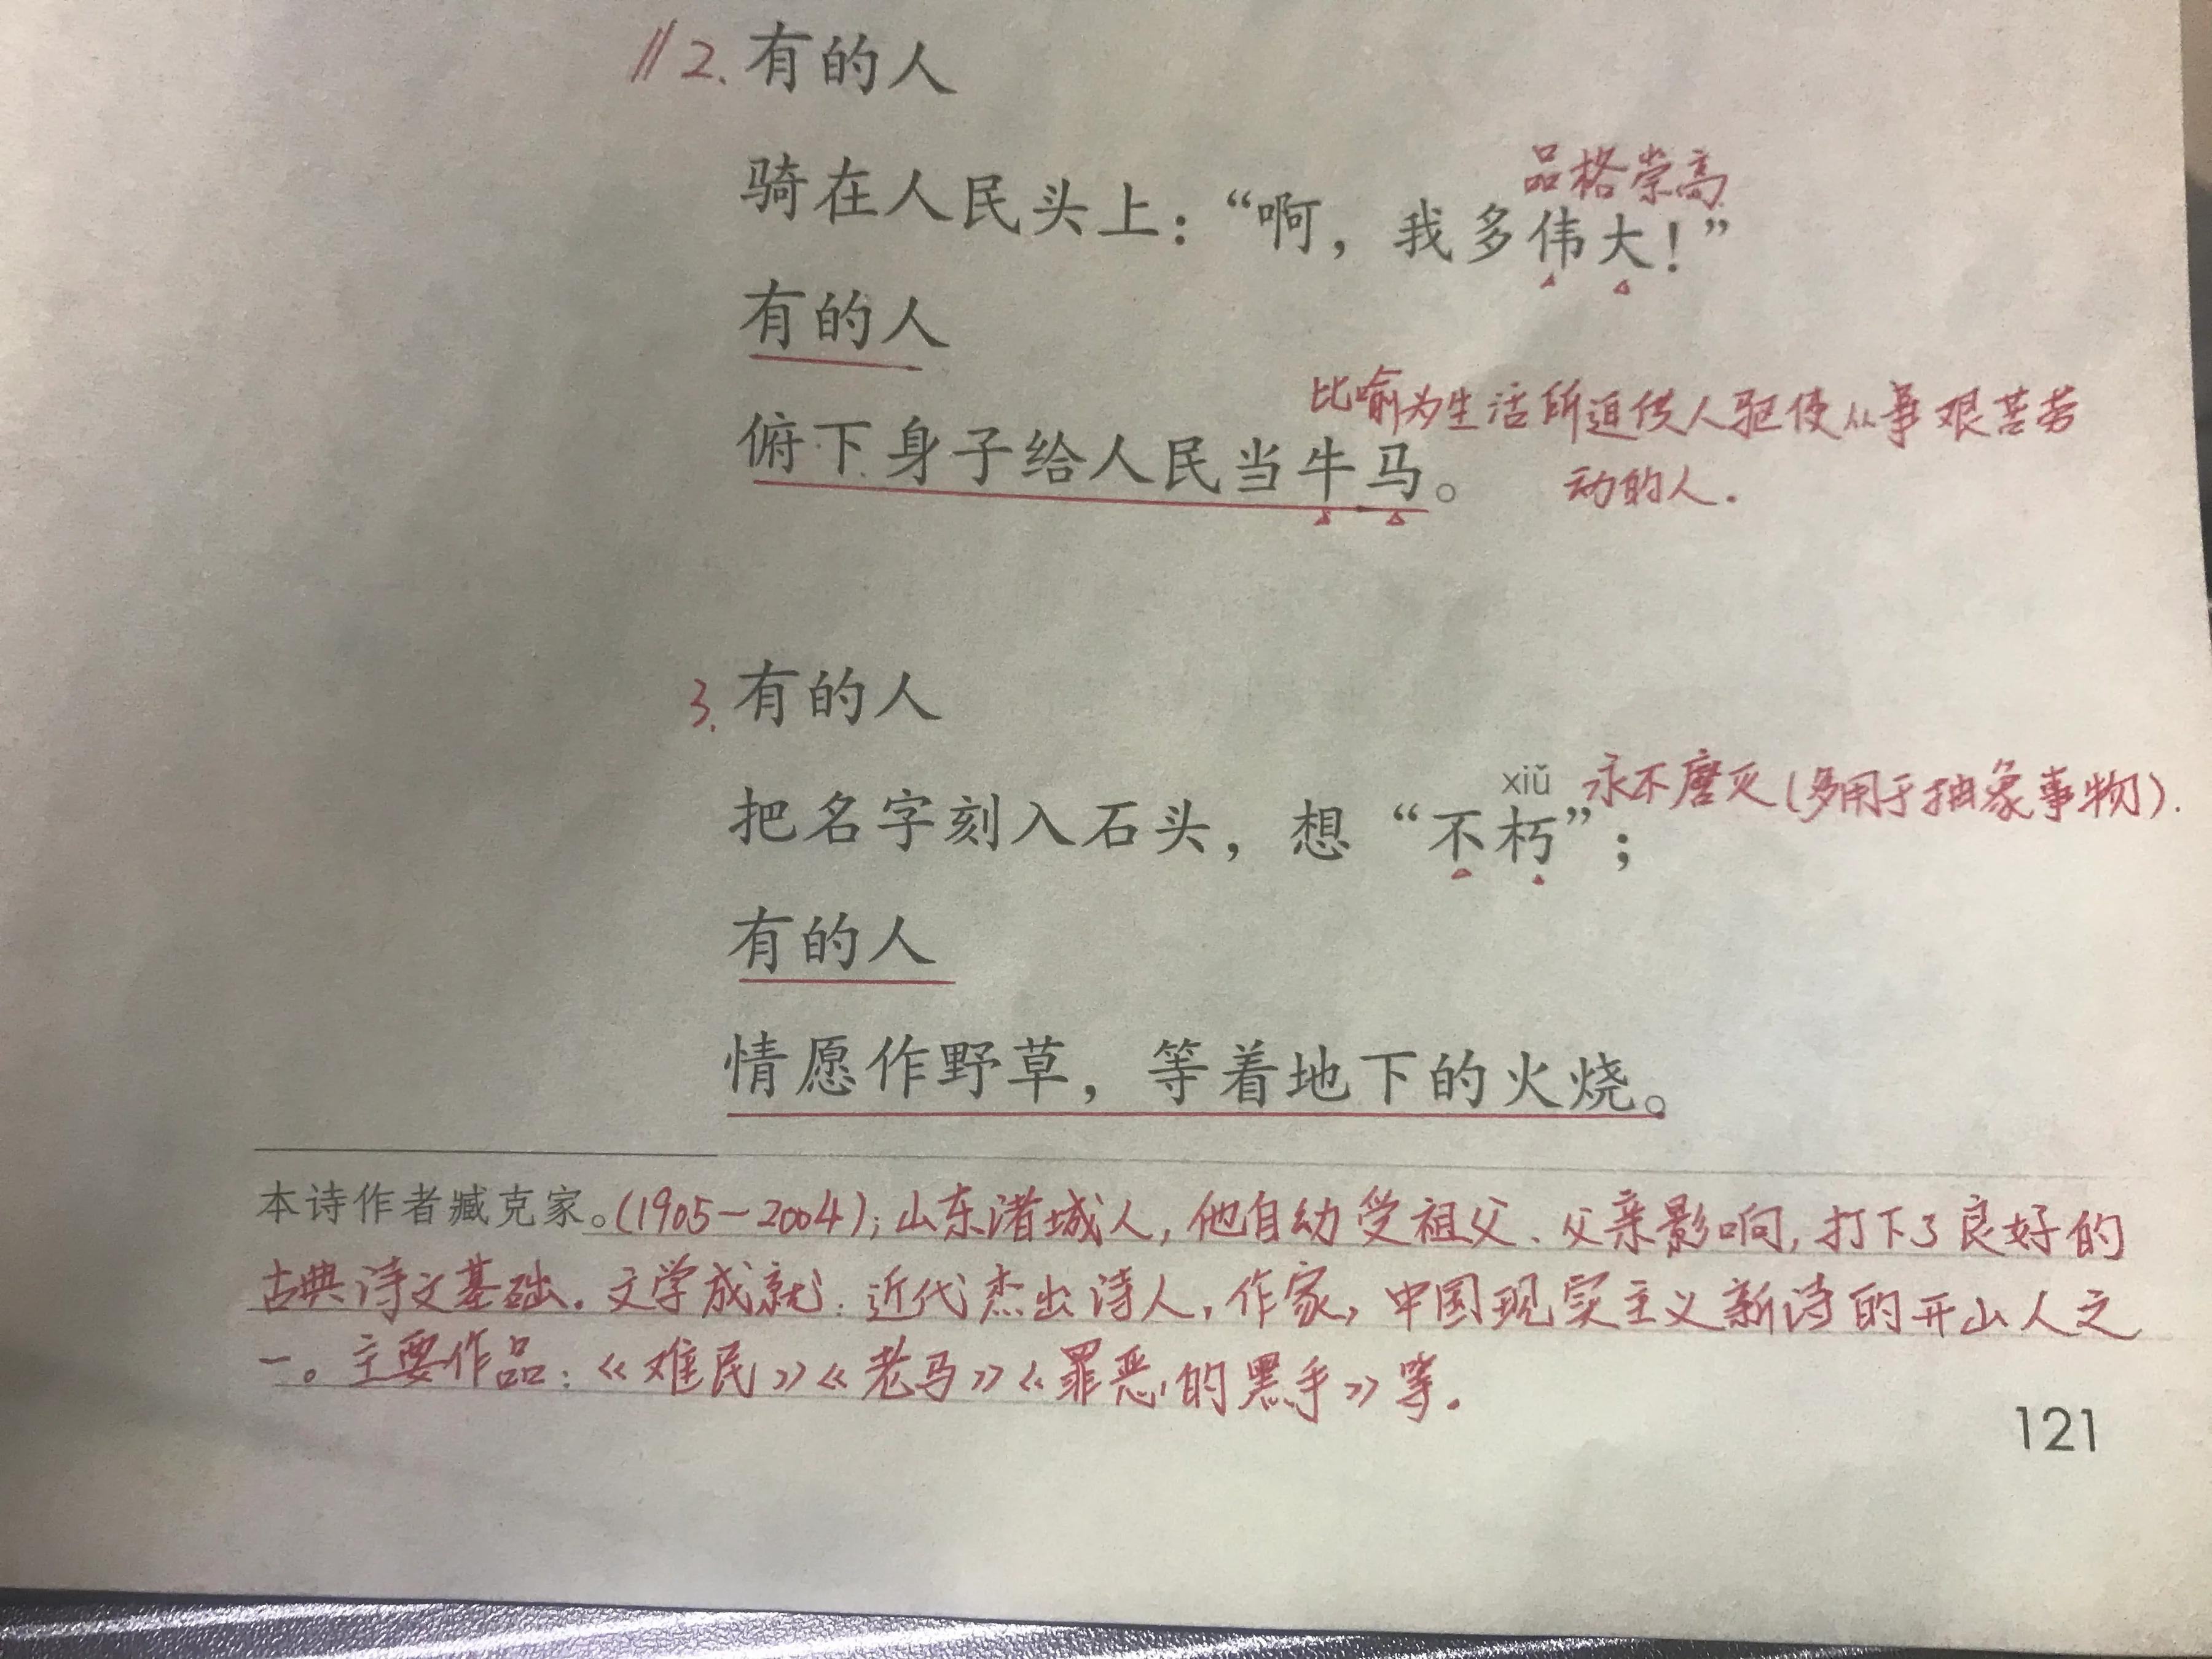 ∥2.有的人
品格崇高
骑在人民头上：“啊，我多伟大！”
有的人
比喻为生活所迫供人驱使从事艰苦劳
俯下身子给人民当牛马。
动的人.
3.有的人
xiǔ 永不磨灭(多用于抽象事物).
把名字刻入石头，想“不朽”；
有的人
情愿作野草，等着地下的火烧。
本诗作者臧克家。(1905-2004);山东诸城人,他自幼受祖父、父亲影响,打下了良好的
古典诗文基础.文学成就:近代杰出诗人,作家,中国现实主义新诗的开山人之
一。主要作品:《难民》《老马》《罪恶的黑手》等.
121